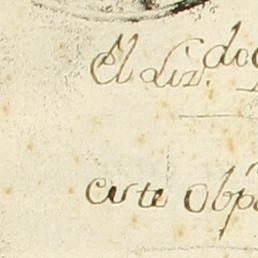 El Liz.do
este Obp